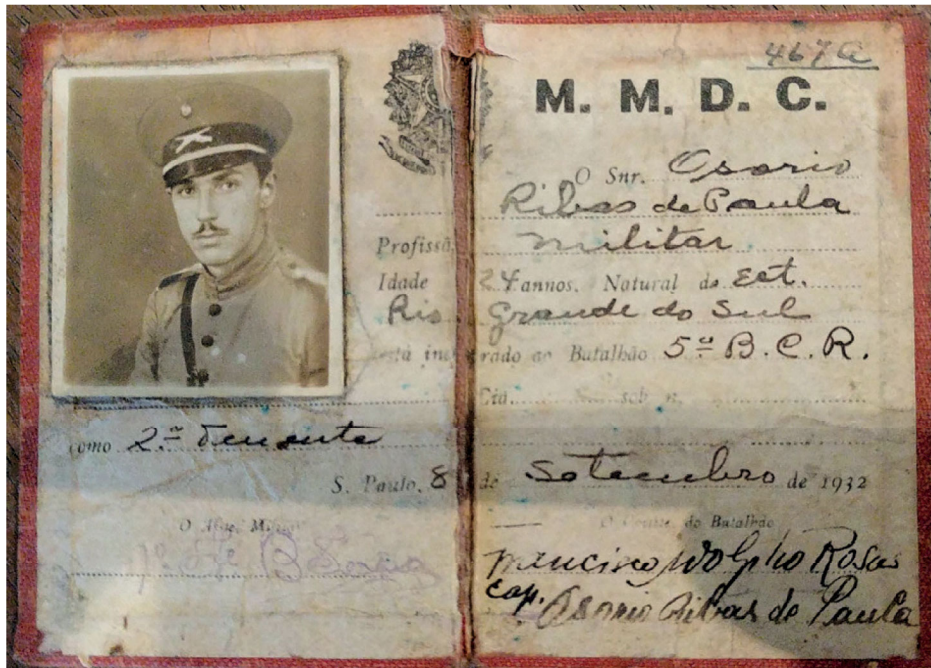 467 a
M. M. D. C.
O Snr. Osorio
Ribas de Paula
Profissã militar
Idade 24 annos. Natural do Est.
Rio Grande do Sul
está incorado ao Batalhão 5º B. C. R.
Cia. sob n.
como 2º Tenente
S. Paulo, 8 de Setembro de 1932
O Militar
O Comte. do Batalhão
Rosas
Cap.
Osorio Ribas de Paula